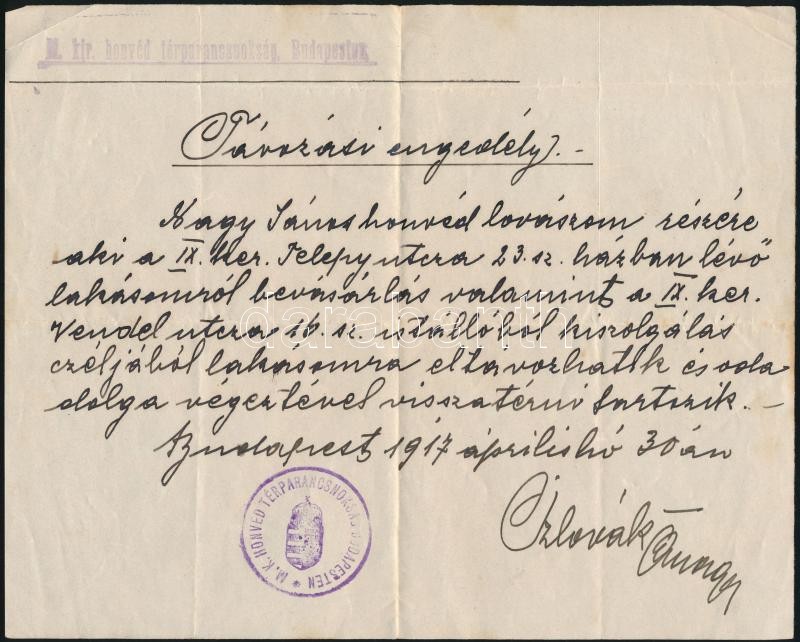 M. kir. honvéd térparancsnokság, Budapesten
Távozási engedély.-
Nagy János honvéd lovászom részére
aki a IX. ker. Telepy utcza 23. sz. házban lévő
lakásomról bevásárlás valamint a IX. ker.
Vendel utcza 16. sz. istallóból kiszolgálás
czéljából lakásomra eltavozhatik és oda
dolga végeztével visszatérni tartozik.-
Budapest 1917 április hó 30 án
Szlovák
M. K. HONVÉD TÉRPARANCSNOKSÁG BUDAPESTEN
darabanth